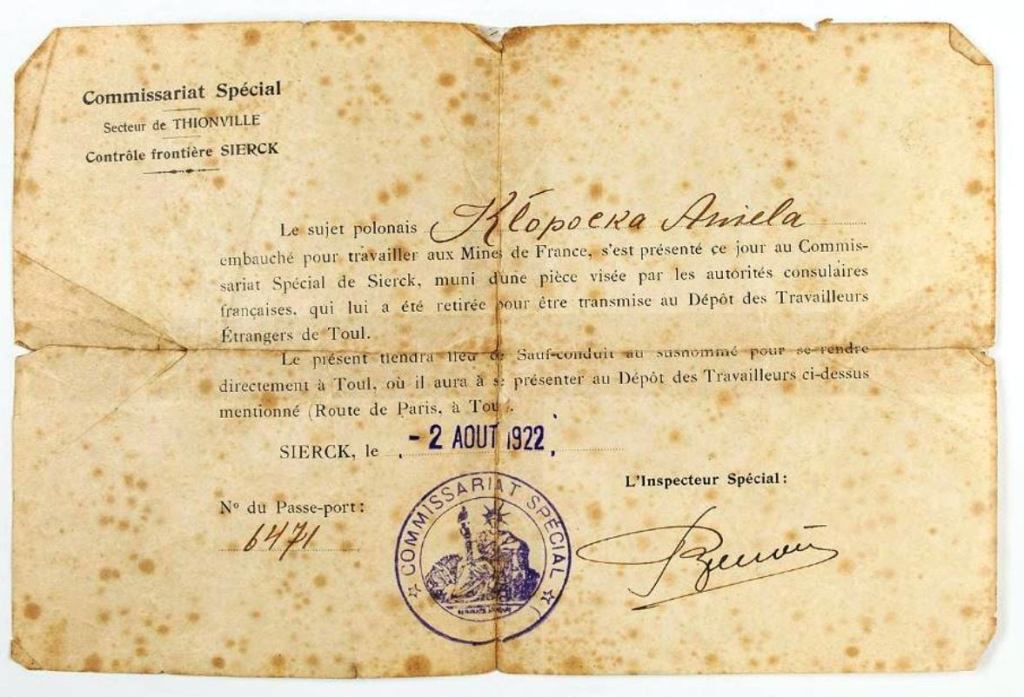 Commissariat Spécial
Secteur de THIONVILLE
Contrôle frontière SIERCK
Le sujet polonais Kłopocka Aniela
embauché pour travailler aux Mines de France, s'est présenté ce jour au Commis-
sariat Spécial de Sierck, muni d'une pièce visée par les autorités consulaires
françaises, qui lui a été retirée pour être transmise au Dépôt des Travailleurs
Étrangers de Toul.
Le présent tiendra lieu de Sauf-conduit au susnommé pour se rendre
directement à Toul, où il aura à se présenter au Dépôt des Travailleurs ci-dessus
mentionné (Route de Paris, à Toul).
SIERCK, le - 2 AOUT 1922
L'Inspecteur Spécial:
N° du Passe-port:
6471
COMMISSARIAT SPÉCIAL